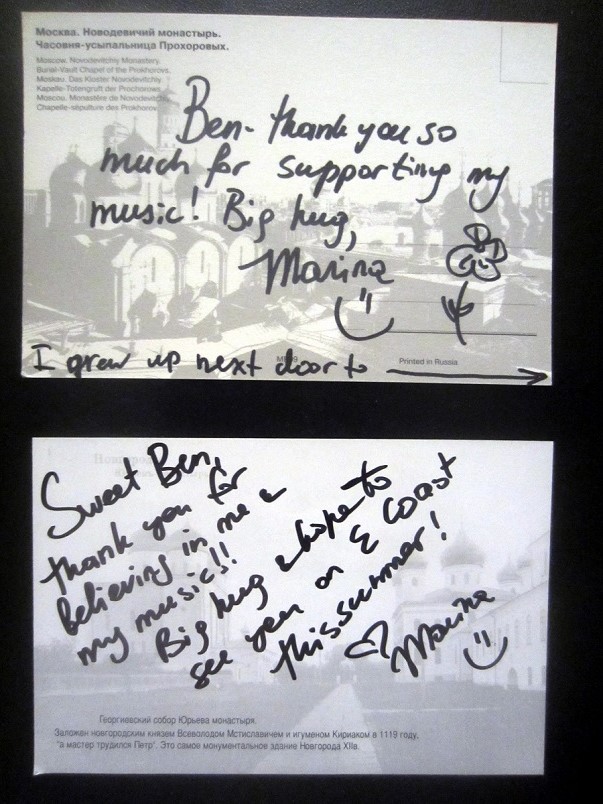 Москва. Новодевичий монастырь.
Часовня-усыпальница Прохоровых.
Moscow. Novodevitchiy Monastery.
Burial-Vault Chapel of the Prokhorovs.
Moskau. Das Kloster Novodevitchiy
Kapelle-Totengruft der Prochorows
Moscou. Monastère de Novodevitchi
Chapelle-sépulture des Prokhorov
Ben- thank you so
much for supporting my
music! Big hug,
Marina
I grew up next door to
Printed in Russia
Sweet Ben,
thank you for
believing in me &
my music!!
Big hug & hope to
see you on E Coast
this summer!
Marina
Георгиевский собор Юрьева монастыря.
Заложен новгородским князем Всеволодом Мстиславичем и игуменом Кириаком в 1119 году,
"а мастер трудился Петр". Это самое монументальное здание Новгорода XIIв.